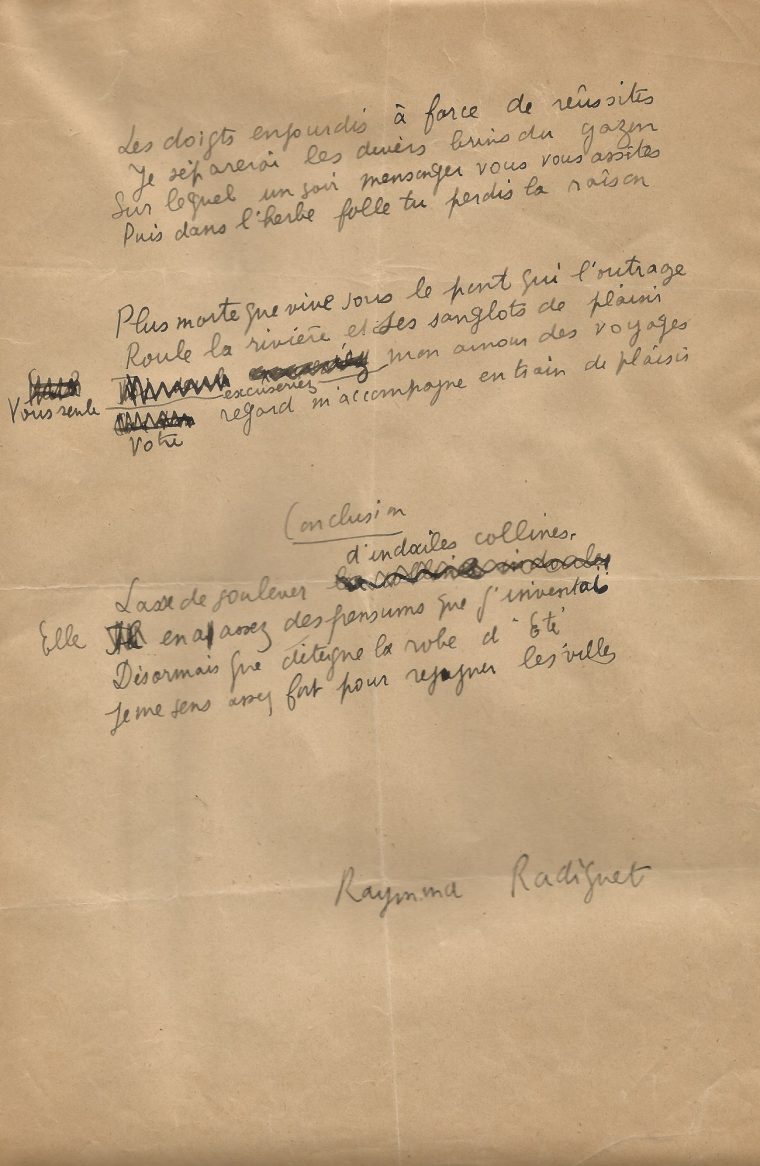 Les doigts engourdis à force de réussites
Je séparerai les divers brins du gazon
Sur lequel un soir mensonger vous vous assîtes
Puis dans l'herbe folle tu perdis la raison
Plus morte que vive sous le pont qui l'outrage
Roule la rivière et ses sanglots de plaisir
Vous seule excuseriez mon amour des voyages
Votre regard m'accompagne en train de plaisir
Conclusion
d'indociles collines.
Lasse de soulever
Elle en a assez des pensums que j'inventai
Désormais que déteigne la robe d'Eté
Je me sens assez fort pour regagner les villes
Raymond Radiguet